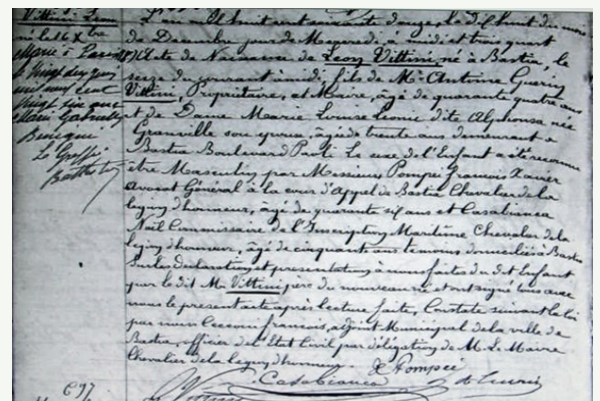 Vittini Leon
né le 16 Xbre
Marié à Paris
le vingt
mil neuf cent
vingt six avec
Marie
Le Greffier
L'an mil huit cent soixante douze, le dix huit du mois
de Decembre, pardevant à midi et trois quart
Acte de Naissance de Leon Vittini né à Bastia, le
seize du courant à midi, fils de Mr Antoine Guerin
Vittini, Propriétaire, et Maire, âgé de quarante quatre ans
et de Dame Marie Louise Leonie dite Alphonsa née
Granville son épouse, âgée de trente ans demeurant à
Bastia Boulevard Paoli. Le sexe de l'Enfant a été reconnu
être Masculin par Messieurs Pompei François Xavier
Avocat Général à la cour d'Appel de Bastia Chevalier de la
legion d'honneur, âgé de quarante six ans et Casabianca
Noël Commissaire de l'Inscription Maritime Chevalier de la
legion d'honneur, âgé de cinquante ans temoins domiciliés à Bastia
Sur la declaration et presentation à nous faites du dit Enfant
par le dit Mr Vittini père du nouveau né et ont signé avec
nous le present acte après lecture faite, Constaté suivant la loi
par nous François, adjoint Municipal de la ville de
Bastia, officier de l'Etat Civil par délégation de M. Le Maire
Chevalier de la legion d'honneur.
Pompei
Casabianca
697
Vittini